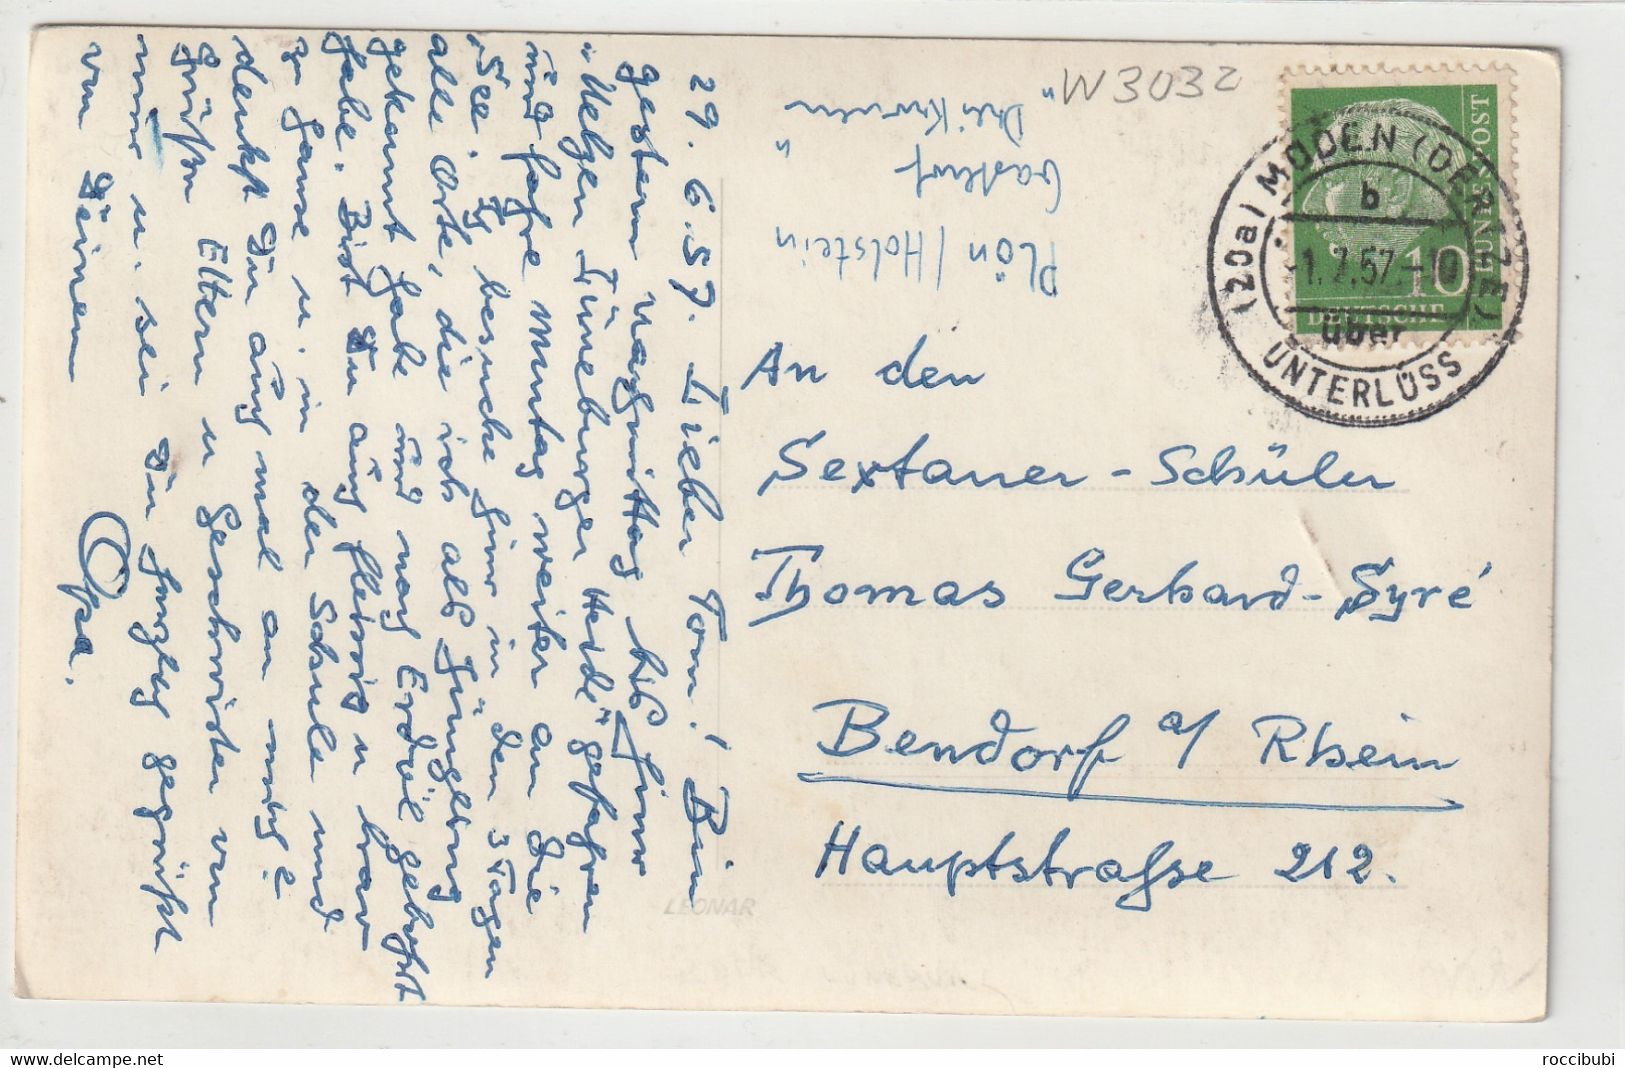 29.6.57. Lieber Tom! Bin
gestern Nachmittag bis hier
"Uelzen Lüneburger Heide" gefahren
und fahre Montag weiter an die
See. Ich besuche hier in den 3 Tagen
alle Orte, die ich als Jüngling
gekannt habe und nach Erdöl gebohrt
habe. Bist Du auch fleissig u brav
zu Hause u. in der Schule und
denkst Du auch mal an mich?
Grüsse Eltern u Geschwister von
mir u. sei Du herzlich gegrüßt
von Deinem
Opa.
W3032
"Drei Kronen"
Gasthof
Plön / Holstein
(20a) MÜDEN (OERTZE)
b
-1.7.57.-10
über
UNTERLÜSS
10
DEUTSCHE
BUNDESPOST
An den
Sextaner-Schüler
Thomas Gerhard-Syré
Bendorf a/ Rhein
Hauptstrasse 212.
LEONAR
roccibubi